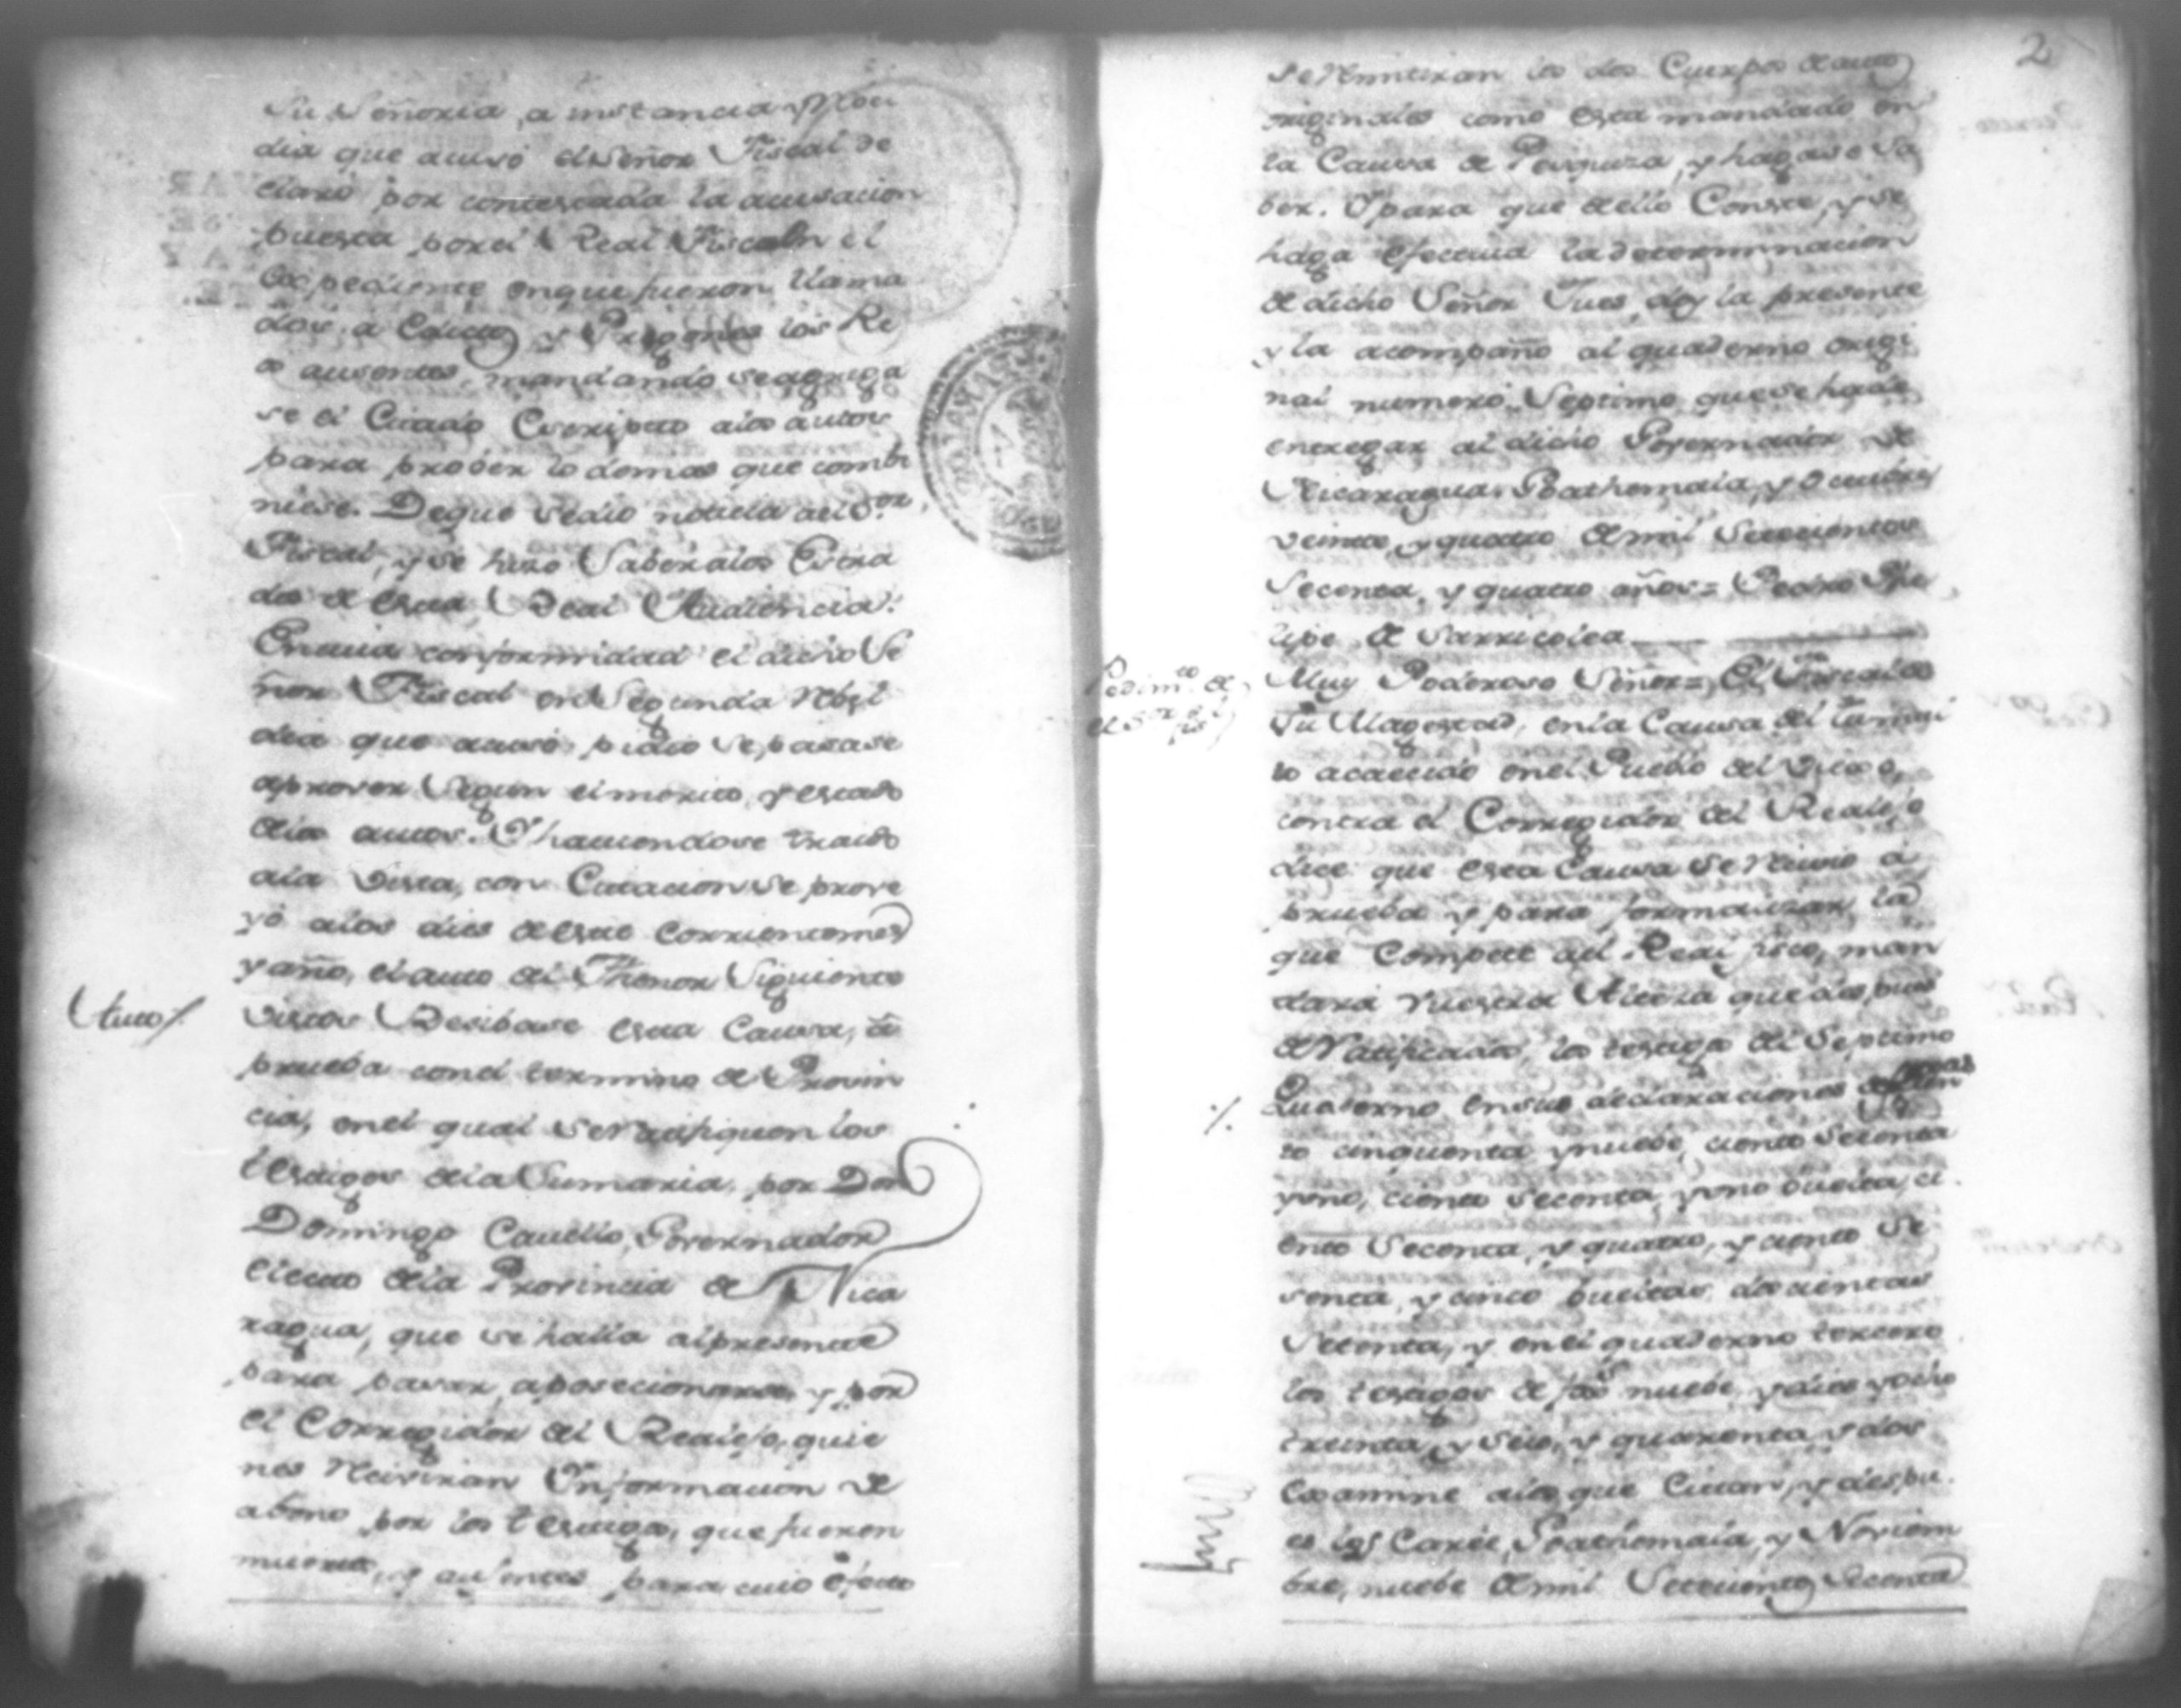 Su Señoria, a instancia y Rvel
dia que acusó el Señor Fiscal de
claró por contestada la acusacion
puesta por el Real Fisco en el
Expediente en que fueron llama
dos, a Edictos y Pregones los Re
os ausentes, mandando se agrega
se el Citado Escripto a los autos
para prober lo demas que combi
niese. De que se dio noticia al S.or
Fiscal, y se hizo Saber a los Estra
dos de esta Real Audiencia.
En cuia conformidad el dicho Se
ñor Fiscal en Segunda Rbel
dia que acusó pidio se pasase
a prover Segun el merito, y estado
de los autos. Y haviendose traido
a la vista, con Citacion se prove
yó a los dies de este corriente mes
y año, el auto del Thenor Siguiente
Auto/.
Vistos Resibase esta Causa, à
prueba con el termino de Provin
cia, en el qual se Ratifiquen los
testigos de la Sumaria, por Don
Domingo Cavello, Governador
electo de la Provincia de Nica
ragua, que se halla al presente
para pasar a posecionarse, y por
el Corregidor del Realejo, quie
nes Reciviran Informacion de
abono por los testigos, que fueren
muertos, y ausentes para cuio efecto
2
se Rmitiran los dos Cuerpos de autos
originales como esta mandado en
la Causa de Pesquiza, y hagase sa
ber. Y para que de ello Conste, y se
haga efectiva la determinacion
de dicho Señor Jues, doy la presente
y la acompaño al quaderno origi
nal numero Septimo que se ha de
entregar al dicho Governador de
Nicaragua. Goathemala, y Octubre
veinte, y quatro de mil Setecientos
Secenta, y quatro años = Pedro Phe
lipe de Sarricolea
Pedim.to de
el S.or Fis.l
Muy Poderoso Señor = El Fiscal de
Su Magestad, en la Causa del tumul
to acaecido en el Pueblo del Viejo,
contra el Corregidor del Realejo
dice que esta Causa se Recivio a
prueba y para formalizar la
que Compete al Real fisco, man
dara Vuestra Alteza que despues
de Ratificados, los testigos del Septimo
Quaderno en sus declaraciones de fojas cien
to cinquenta y nuebe, ciento Setenta
y uno, ciento Secenta, y uno buelta, ci
ento Secenta, y quatro, y ciento Se
senta, y cinco bueltas, docientas
Setenta, y en el quaderno tercero
los testigos de fojas nuebe, y dies y ocho
treinta, y seis, y quarenta, y dos
Examine a los que Citan, y despu
es los Caree, Goathemala, y Noviem
bre, nuebe de mil Setecientos Secenta